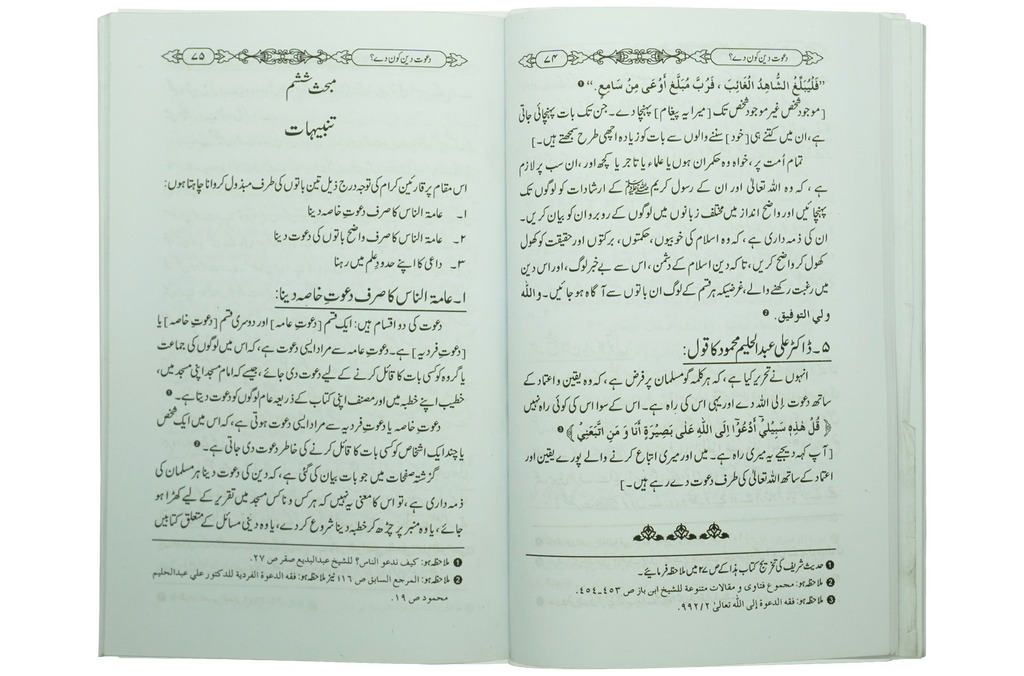 دعوت دین کون دے؟ ۷۴
”فَلْيُبَلِّغُ الشَّاهِدُ الْغَائِبَ ، فَرُبَّ مُبَلَّغٍ أَوْعَى مِنْ سَامِعٍ.“ ❶
[موجود شخص غیر موجود شخص تک [میرا یہ پیغام] پہنچا دے۔ جن تک بات پہنچائی جاتی
ہے، ان میں کتنے ہی [خود] سننے والوں سے بات کو زیادہ اچھی طرح سمجھتے ہیں۔]
تمام اُمت پر، خواہ وہ حکمران ہوں یا علماء یا تاجر یا کچھ اور، ان سب پر لازم
ہے، کہ وہ اللہ تعالیٰ اور ان کے رسول کریم ﷺ کے ارشادات کو لوگوں تک
پہنچائیں اور واضح انداز میں مختلف زبانوں میں لوگوں کے روبرو ان کو بیان کریں۔
ان کی ذمہ داری ہے، کہ وہ اسلام کی خوبیوں، حکمتوں، برکتوں اور حقیقت کو کھول
کھول کر واضح کریں، تاکہ دین اسلام کے دشمن، اس سے بے خبر لوگ، اور اس دین
میں رغبت رکھنے والے، غرضیکہ ہر قسم کے لوگ ان باتوں سے آگاہ ہو جائیں۔ و اللّٰه
ولي التوفيق. ❷
۵۔ ڈاکٹر علی عبدالحلیم محمود کا قول:
انہوں نے تحریر کیا ہے، کہ ہر کلمہ گو مسلمان پر فرض ہے، کہ وہ یقین و اعتماد کے
ساتھ دعوت إلی اللہ دے اور یہی اس کی راہ ہے۔ اس کے سوا اس کی کوئی راہ نہیں
﴿ قُلْ هٰذِهٖ سَبِيْلِيْٓ أَدْعُوْٓا إِلَى اللّٰهِ عَلٰى بَصِيْرَةٍ أَنَا وَ مَنِ اتَّبَعَنِيْ ﴾ ❸
[آپ کہہ دیجیے یہ میری راہ ہے۔ میں اور میری اتباع کرنے والے پورے یقین اور
اعتماد کے ساتھ اللہ تعالیٰ کی طرف دعوت دے رہے ہیں۔]
❶ حدیث شریف کی تخریج کتاب ہذا کے ص ۲۷ میں ملاحظہ فرمائیے۔
❷ ملاحظہ ہو: مجموع فتاوى و مقالات متنوعة للشيخ ابن باز ص ٤٥٣ـ٤٥٤.
❸ ملاحظہ ہو: فقه الدعوة إلى اللّٰه تعالىٰ ٩٩٢/٢.
دعوت دین کون دے؟ ۷۵
مبحث ششم
تنبیہات
اس مقام پر قارئین کرام کی توجہ درج ذیل تین باتوں کی طرف مبذول کروانا چاہتا ہوں:
۱۔ عامۃ الناس کا صرف دعوتِ خاصہ دینا
۲۔ عامۃ الناس کا صرف واضح باتوں کی دعوت دینا
۳۔ داعی کا اپنے حدودِ علم میں رہنا
۱۔ عامۃ الناس کا صرف دعوتِ خاصہ دینا:
دعوت کی دو اقسام ہیں: ایک قسم [دعوتِ عامہ] اور دوسری قسم [دعوتِ خاصہ] یا
[دعوتِ فردیہ] ہے۔ دعوتِ عامہ سے مراد ایسی دعوت ہے، کہ اس میں لوگوں کی جماعت
یا گروہ کو کسی بات کا قائل کرنے کے لیے دعوت دی جائے، جیسے کہ امام مسجد اپنی مسجد میں،
خطیب اپنے خطبہ میں اور مصنف اپنی کتاب کے ذریعہ عام لوگوں کو دعوت دیتا ہے۔ ❶
دعوتِ خاصہ یا دعوتِ فردیہ سے مراد ایسی دعوت ہوتی ہے، کہ اس میں ایک شخص
یا چند ایک اشخاص کو کسی بات کا قائل کرنے کی خاطر دعوت دی جاتی ہے۔ ❷
گزشتہ صفحات میں جو بات بیان کی گئی ہے، کہ دین کی دعوت دینا ہر مسلمان کی
ذمہ داری ہے، تو اس کا معنی یہ نہیں کہ ہر کس و ناکس مسجد میں تقریر کے لیے کھڑا ہو
جائے، یا وہ منبر پر چڑھ کر خطبہ دینا شروع کر دے، یا وہ دینی مسائل کے متعلق کتابیں
❶ ملاحظہ ہو: كيف ندعو الناس؟ للشيخ عبدالبديع صقر ص ٢٧.
❷ ملاحظہ ہو: المرجع السابق ص ١١٦؛ نیز ملاحظہ ہو: فقه الدعوة الفردية للدكتور علي عبدالحليم
محمود ص ١٩.